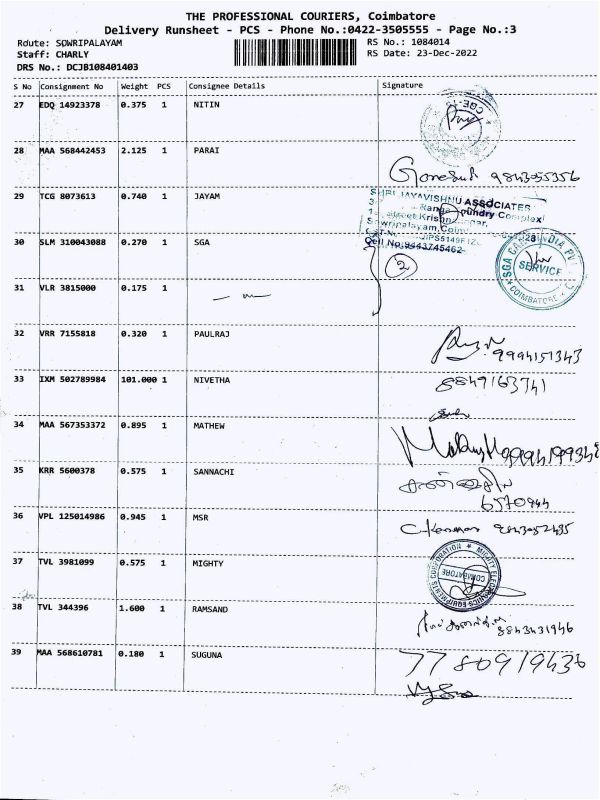 THE PROFESSIONAL COURIERS, Coimbatore
Delivery Runsheet - PCS - Phone No.:0422-3505555 - Page No.:3
Route: SOWRIPALAYAM
RS No.: 1084014
Staff: CHARLY
RS Date: 23-Dec-2022
DRS No.: DCJB108401403
S No Consignment No Weight PCS Consignee Details Signature
27 EDQ 14923378 0.375 1 NITIN
28 MAA 568442453 2.125 1 PARAI
29 TCG 8073613 0.740 1 JAYAM
SHRI JAYAVISHNU ASSOCIATES
Sowripalayam, Coim
Cell No:9443745462
2
30 SLM 310043088 0.270 1 SGA
SGA CARS INDIA PVT
SERVICE
COIMBATORE
31 VLR 3815000 0.175 1
32 VRR 7155818 0.320 1 PAULRAJ
9994151343
33 IXM 502789984 101.000 1 NIVETHA
8849163741
34 MAA 567353372 0.895 1 MATHEW
35 KRR 5600378 0.575 1 SANNACHI
6570944
36 VPL 125014986 0.945 1 MSR
37 TVL 3981099 0.575 1 MIGHTY
MIGHTY ELECTRONICS EQUIPMENTS CORPORATION
COIMBATORE
38 TVL 344396 1.600 1 RAMSAND
8843431946
39 MAA 568610781 0.180 1 SUGUNA
7780919436